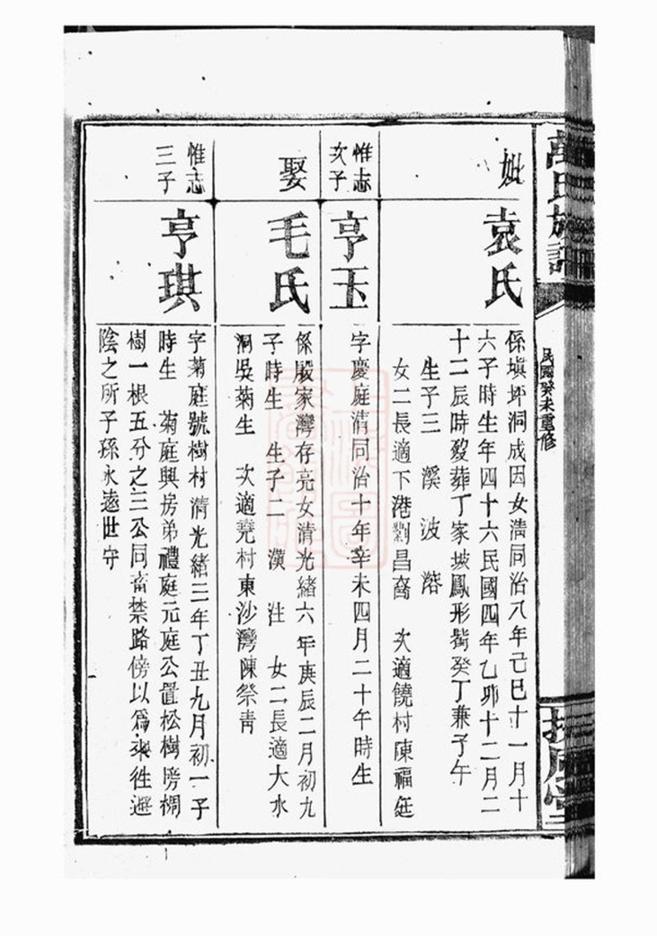 萬氏族譜
民國癸未重修
妣
袁氏
係塡坪洞成因女清同治八年己巳十一月十
六子時生年四十六民國四年乙卯十二月二
十二辰時歿葬丁家坡鳳形嘴癸丁兼子午
生子三　溪　波　溶
女二長適下港劉昌裔　次適饒村陳福廷
惟志
次子
亨玉
字慶庭清同治十年辛未四月二十午時生
娶
毛氏
係殷家灣存亮女清光緒六年庚辰二月初九
子時生　生子二　漢　注　女二長適大水
洞吳菊生　次適堯村東沙灣陳祭青
惟志
三子
亨琪
字菊庭號樹村清光緒三年丁丑九月初一子
時生　菊庭興房弟禮庭元庭公置松樹塝椆
樹一根五分之三公同畜禁路傍以爲來往遮
陰之所子孫永遠世守